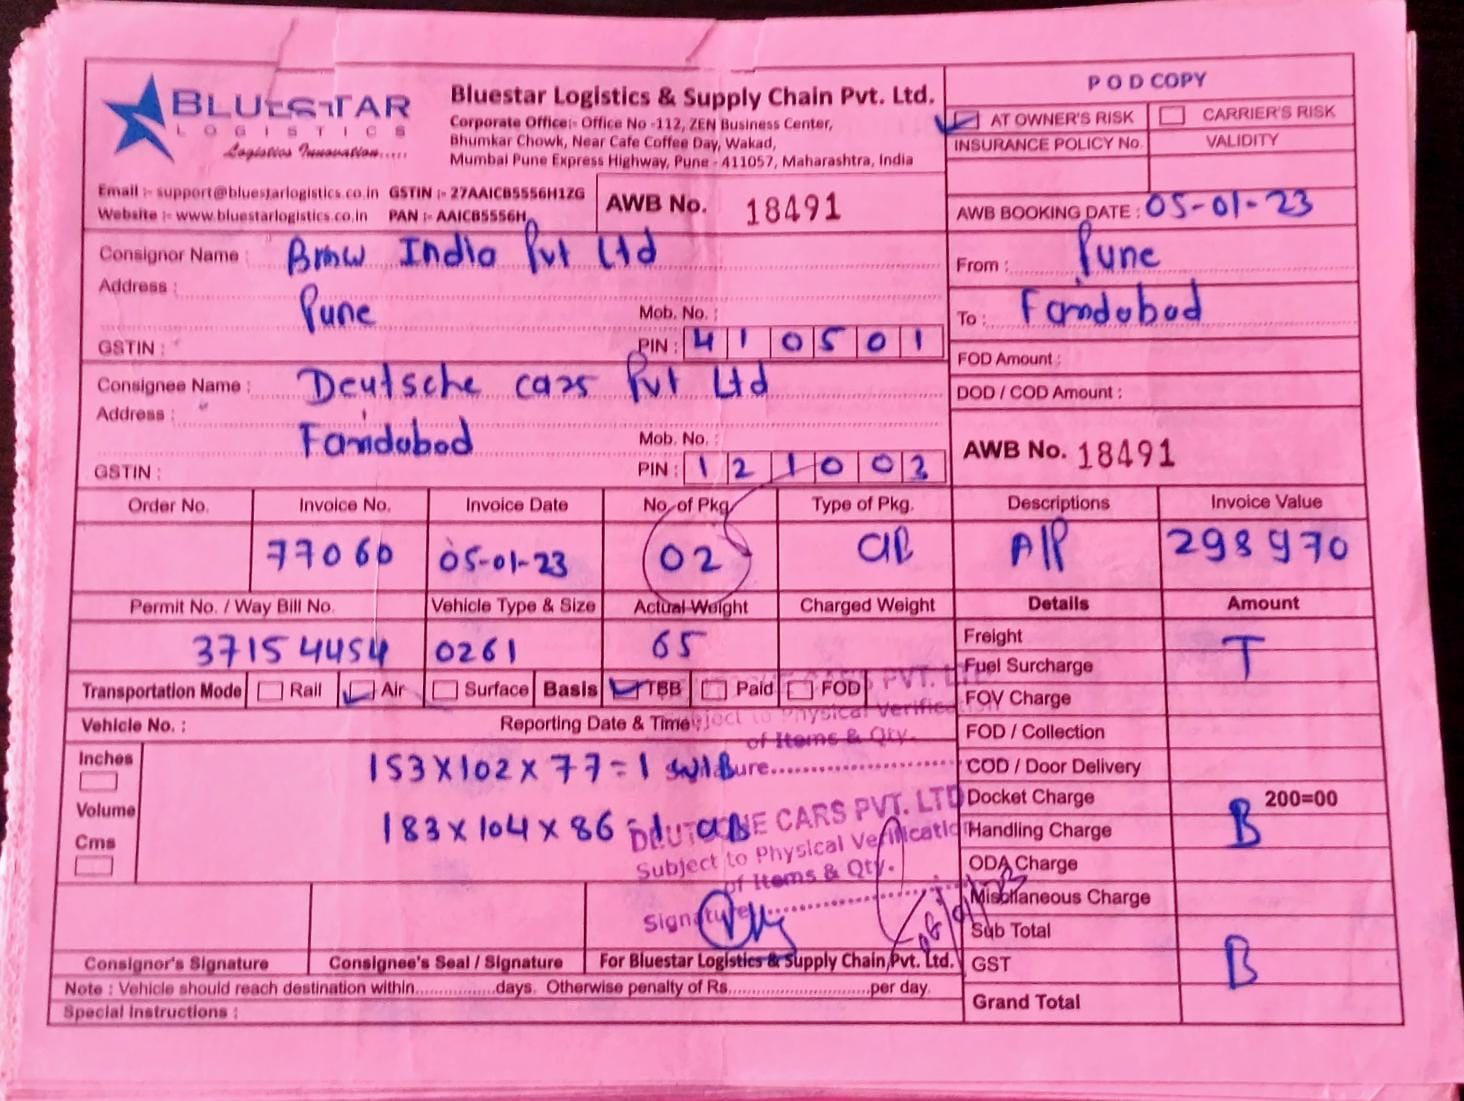 BLUESTAR
LOGISTICS
Logistics Innovation.....
Bluestar Logistics & Supply Chain Pvt. Ltd.
Corporate Office:- Office No -112, ZEN Business Center,
Bhumkar Chowk, Near Cafe Coffee Day, Wakad,
Mumbai Pune Express Highway, Pune - 411057, Maharashtra, India
Email :- support@bluestarlogistics.co.in GSTIN :- 27AAICB5556H1ZG
Website :- www.bluestarlogistics.co.in PAN :- AAICB5556H
AWB No. 18491
POD COPY
AT OWNER'S RISK CARRIER'S RISK
INSURANCE POLICY No. VALIDITY
AWB BOOKING DATE : 05-01-23
Consignor Name : Bmw India Pvt Ltd
Address :
Pune
Mob. No. :
GSTIN : PIN : 410501
From : Pune
To : Faridabad
FOD Amount :
DOD / COD Amount :
Consignee Name : Deutsche cars Pvt Ltd
Address :
Faridabad
Mob. No. :
GSTIN : PIN : 121003
AWB No. 18491
Order No. Invoice No. Invoice Date No. of Pkg Type of Pkg. Descriptions Invoice Value
77060 05-01-23 02 A/P 298970
Permit No. / Way Bill No. Vehicle Type & Size Actual Weight Charged Weight Details Amount
37154454 0261 65
Freight T
Fuel Surcharge
Transportation Mode Rail Air Surface Basis TBB Paid FOD
FOV Charge
Vehicle No. : Reporting Date & Time
FOD / Collection
CARS PVT. LTD
Subject to Physical Verification
of Items & Qty.
Inches
Volume
Cms
153 x 102 x 77 = 1
183 x 104 x 86
COD / Door Delivery
Docket Charge 200=00
Handling Charge B
ODA Charge
Miscllaneous Charge
Sub Total
GST B
Grand Total
DEUTSCHE CARS PVT. LTD
Subject to Physical Verification
of Items & Qty.
Signature
Consignor's Signature Consignee's Seal / Signature For Bluestar Logistics & Supply Chain Pvt. Ltd.
Note : Vehicle should reach destination within...............days. Otherwise penalty of Rs..........................per day.
Special Instructions :